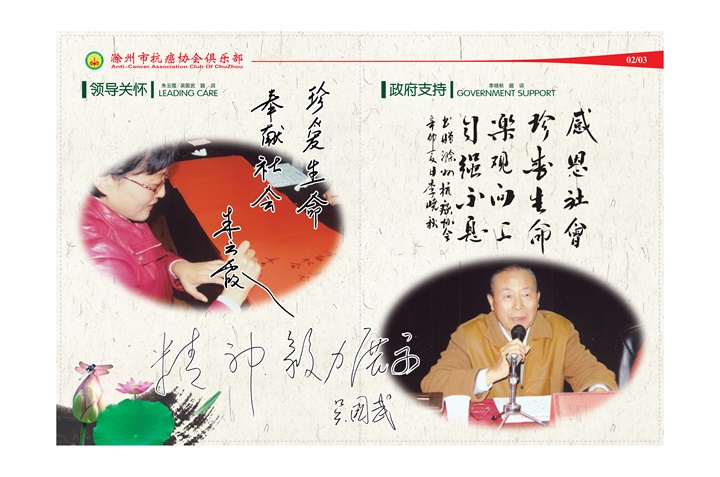 滁州市抗癌协会俱乐部
Anti-Cancer Association Club Of ChuZhou
02/03
领导关怀
朱云霞/吴国武 题 词
LEADING CARE
珍爱生命
奉献社会
朱云霞
精神 毅力 展示
吴国武
政府支持
李晓秋 题 词
GOVERNMENT SUPPORT
感恩社会
珍爱生命
乐观向上
自强不息
书赠滁州抗癌协会
辛卯夏日李晓秋